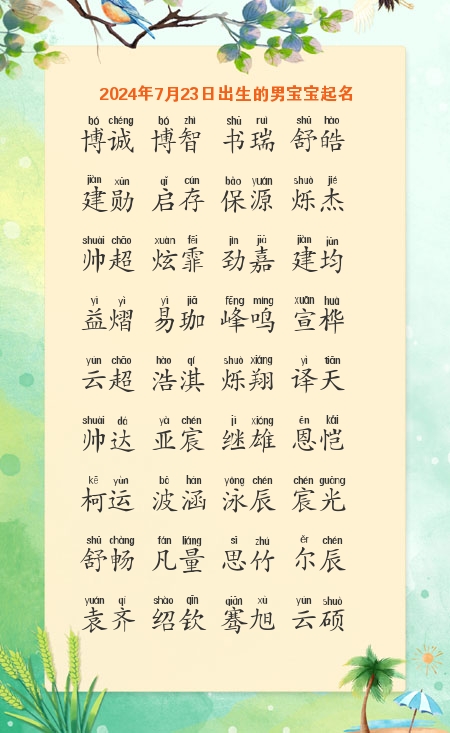 2024年7月23日出生的男宝宝起名
bó chéng bó zhì shū ruì shū hào
博诚 博智 书瑞 舒皓
jiàn xūn qǐ cún bǎo yuán shuò jié
建勋 启存 保源 烁杰
shuài chāo xuàn fēi jìn jiā jiàn jūn
帅超 炫霏 劲嘉 建均
yì yì yì jiā fēng míng xuān huà
益熠 易珈 峰鸣 宣桦
yún chāo hào qí shuò xiáng yì tiān
云超 浩淇 烁翔 译天
shuài dá yà chén jì xióng ēn kǎi
帅达 亚宸 继雄 恩恺
kē yùn bō hán yǒng chén chén guāng
柯运 波涵 泳辰 宸光
shū chàng fán liàng sī zhú ěr chén
舒畅 凡量 思竹 尔辰
yuán qí shào qīn qiān xù yún shuò
袁齐 绍钦 骞旭 云硕